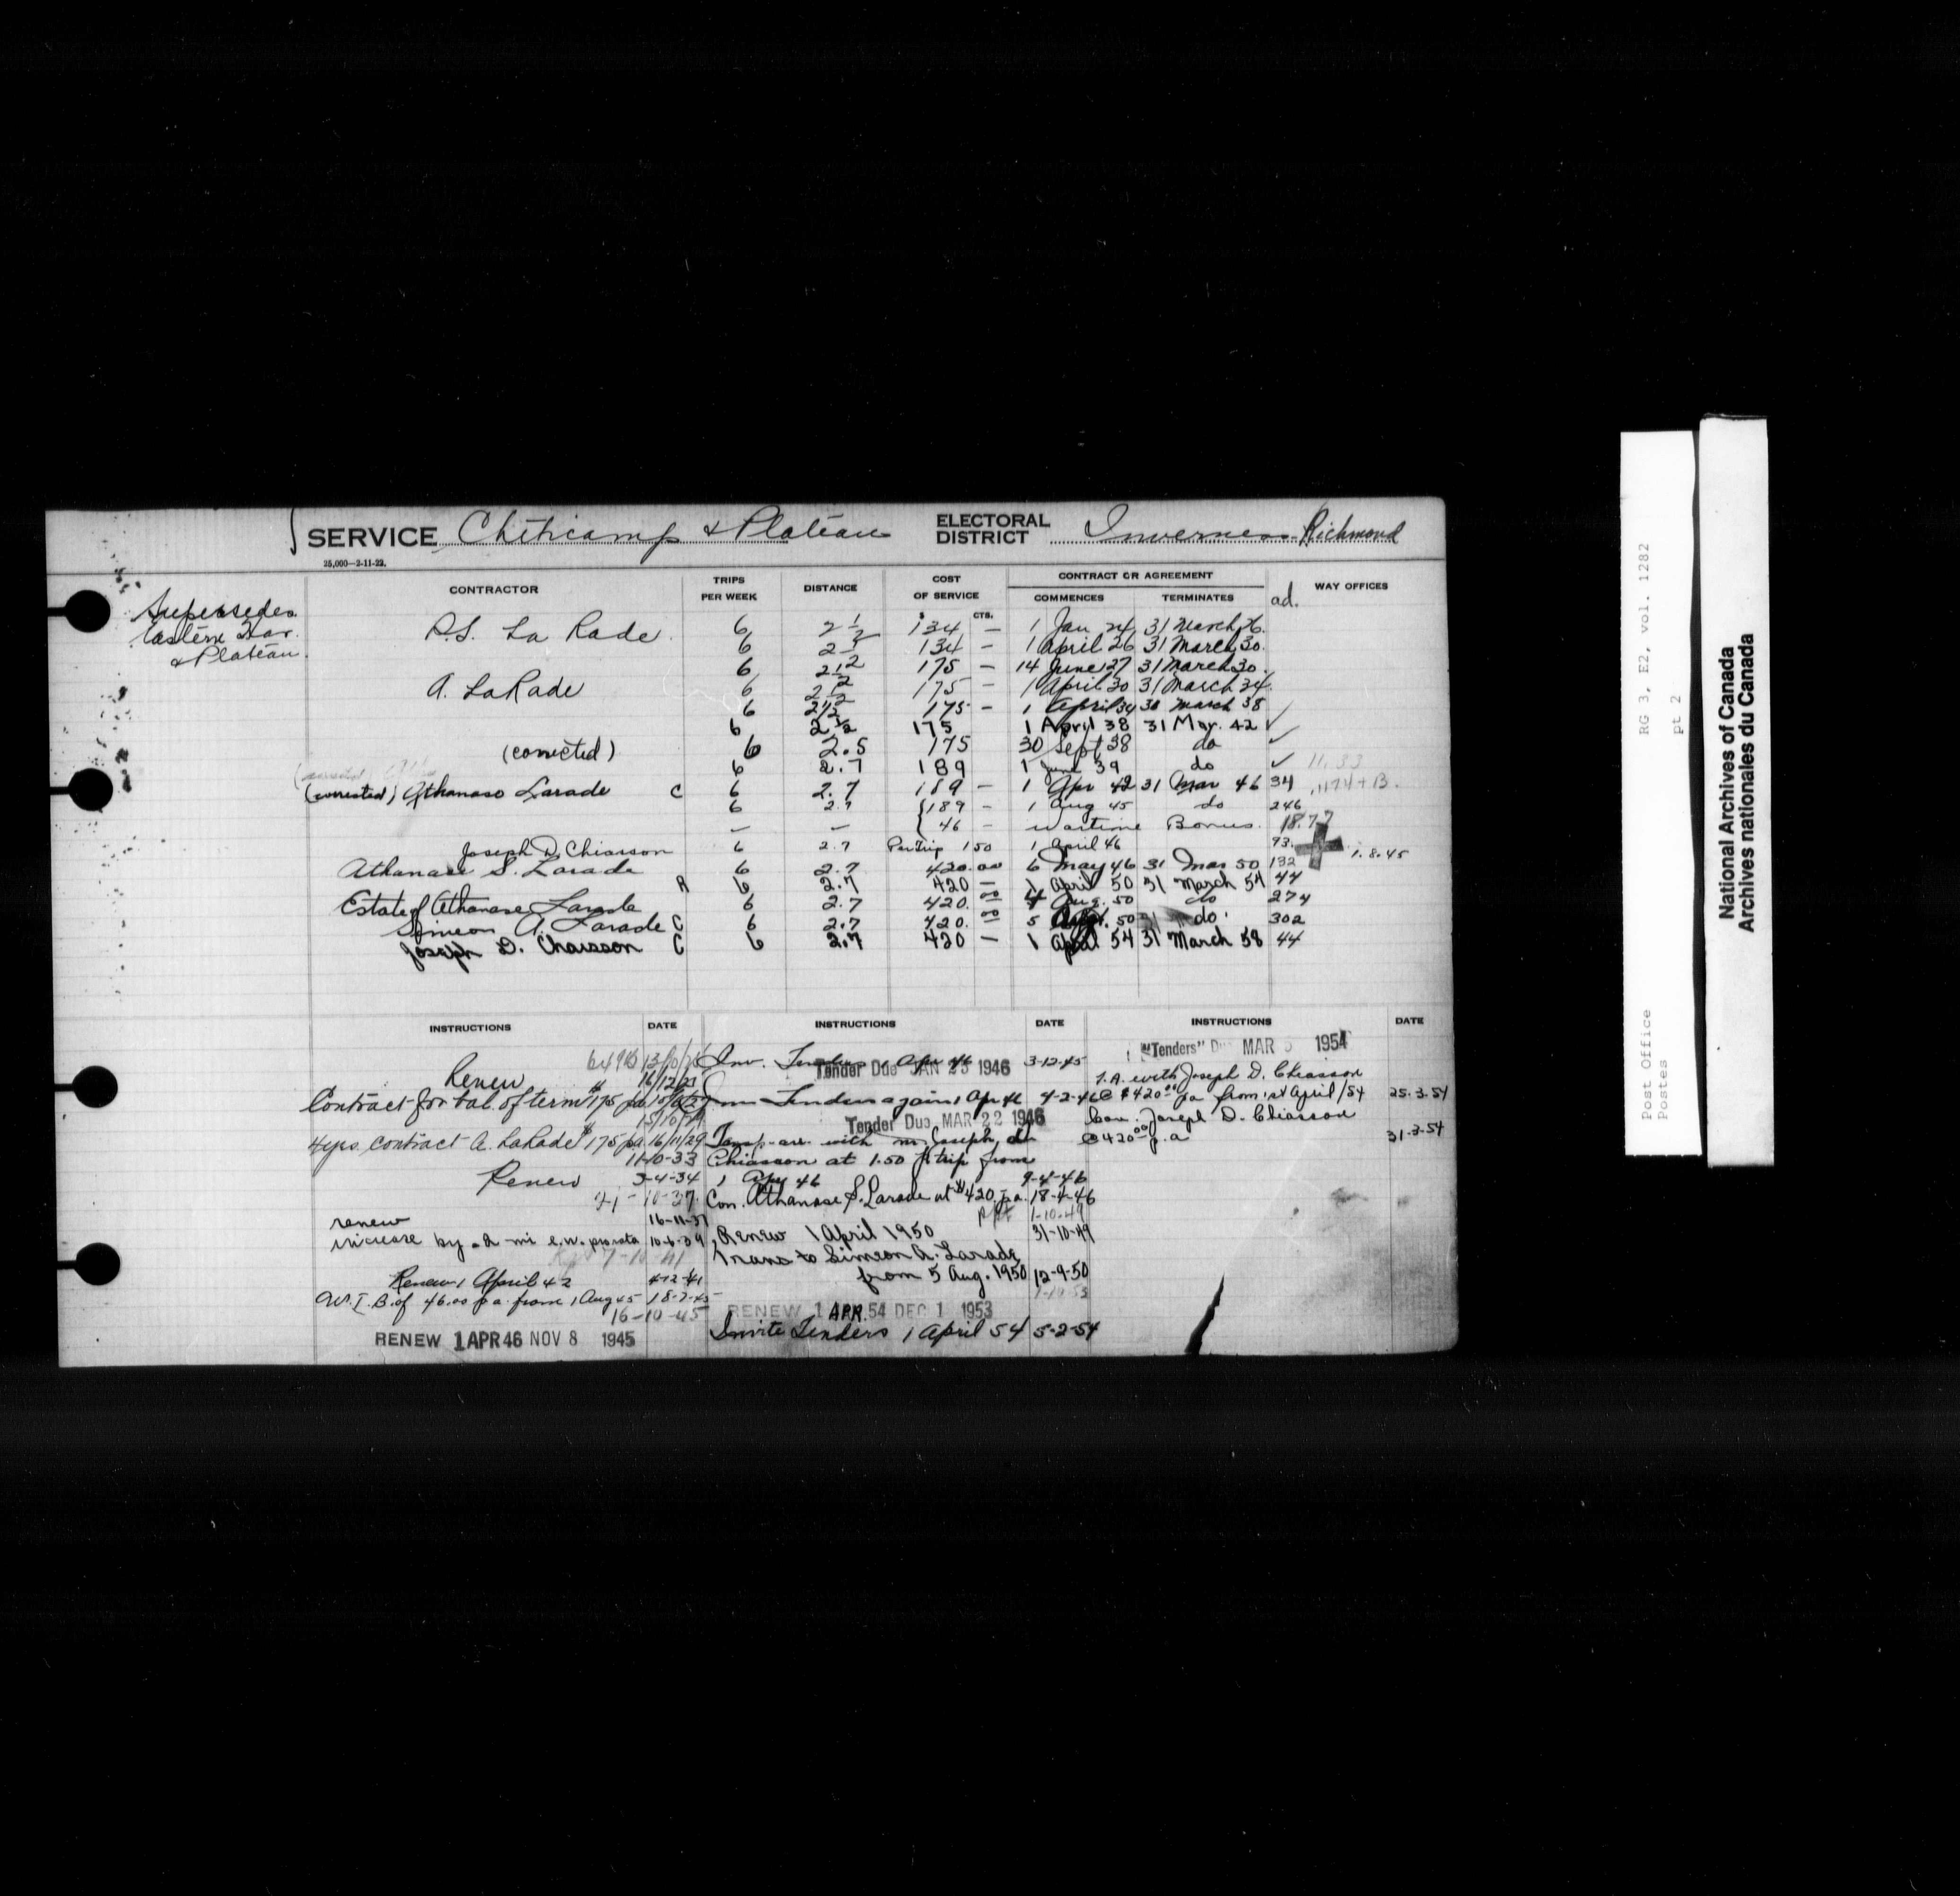 SERVICE Cheticamp & Plateau ELECTORAL DISTRICT Inverness-Richmond
25,000—2-11-22.
CONTRACTOR TRIPS PER WEEK DISTANCE COST OF SERVICE CONTRACT OR AGREEMENT WAY OFFICES
$ CTS. COMMENCES TERMINATES ad.
Supersedes
Eastern Har.
& Plateau
P.S. La Rade. 6 2 1/2 134 — 1 Jan 24 31 March 26.
6 2 1/2 134 — 1 April 26 31 March 30.
6 2 1/2 175 — 14 June 27 31 March 30.
A. LaRade 6 2 1/2 175 — 1 April 30 31 March 34.
6 2 1/2 175 — 1 April 34 31 March 38
6 2 1/2 175 1 April 38 31 Mar. 42 ✓
(corrected) 6 2.5 175 30 Sept 38 do ✓
6 2.7 189 1 June 39 do ✓ 11.33
(corrected) Athanase Larade C 6 2.7 189 — 1 Apr 42 31 Mar 46 34
6 2.7 {189 — 1 Aug 45 do 246
— — {46 — Wartime Bonus. 18.77
Joseph D. Chiasson 6 2.7 Per trip 1 50 1 April 46 93. 1.8.45
Athanase S. Larade 6 2.7 420.00 6 May 46 31 Mar 50 132
R 6 2.7 420 — 1 April 50 31 March 54 44
Estate of Athanase Larade 6 2.7 420.00 4 Aug. 50 do 274
Simeon A. Larade C 6 2.7 420.00 5 Aug. 50 do 302
Joseph D. Chaisson C 6 2.7 420 — 1 April 54 31 March 58 44
INSTRUCTIONS DATE INSTRUCTIONS DATE INSTRUCTIONS DATE
Renew
Contract for bal. of term $175 pa
4 yrs. contract A. LaRade $175 pa. 16/11/29
11-10-33
Renew 3-4-34
renew 16-11-37
increase by .2 mi e.w. pro rata 10-6-39
7-10-41
Renew 1 April 42 4-12-41
W.T.B. of 46.00 p a. from 1 Aug 45 18-7-45
16-10-45
RENEW 1 APR 46 NOV 8 1945
Inv. Tenders 1 Apr 46 3-12-45
Tender Due JAN 23 1946
Inv Tenders again 1 Apr 46 4-2-46
Tender Due MAR 22 1946
Temp. arr. with Mr. Joseph D.
Chiasson at 1.50 p trip from
1 Apr 46 9-4-46
Con. Athanase S. Larade at $420. p.a. 18-4-46
1-10-49
Renew 1 April 1950 31-10-49
Trans to Simeon A. Larade
from 5 Aug. 1950 12-9-50
RENEW 1 APR. 54 DEC 1 1953
Invite Tenders 1 April 54 5-2-54
"Tenders" Due MAR 5 1954
T.A. with Joseph D. Chiasson
@ $420.00 pa from 1st April/54 25.3.54
Con. Joseph D. Chiasson
@ 420.00 p.a 31-3-54
Post Office RG 3, E2, vol. 1282
Postes pt 2
National Archives of Canada
Archives nationales du Canada